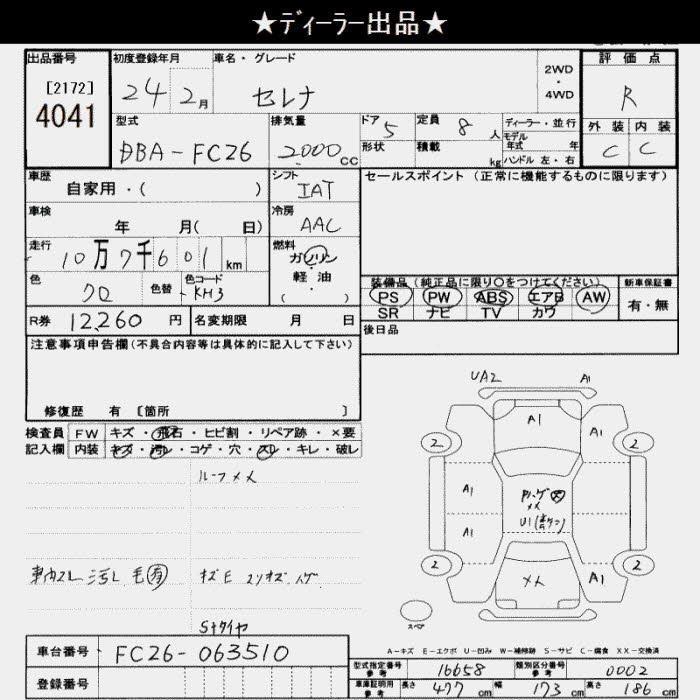 ★ディーラー出品★
出品番号 初度登録年月 車名・グレード 評価点
[2172]
4041
24 2月 セレナ 2WD・4WD R
外装 内装
C C
型式 排気量 ドア 5 定員 8人 ディーラー・並行
モデル年式 年
DBA-FC26 2000cc 形状 積載 kg ハンドル 左・右
車歴 シフト セールスポイント(正常に機能するものに限ります)
自家用・( ) IAT
車検 冷房
年 月( 日) AAC
走行 燃料
10万7千601km ガソリン
軽・油
( )
色 色替 色コード
クロ KH3
装備品(純正品に限り○をつけてください) 新車保証書
PS PW ABS エアB AW 有・無
SR ナビ TV カワ
R券 12,260円 名変期限 月 日
後日品
注意事項申告欄(不具合内容等は具体的に記入して下さい)
修復歴 有 [箇所 ]
検査員 FW キズ・飛石・ヒビ割・リペア跡・×要
記入欄 内装 キズ・汚れ・コゲ・穴・スレ・キレ・破レ
UA2 A1
A1 A1
2 2
A1
A1
A1
2 2
スペア
A-キズ E-エクボ U-凹み W-補修跡 S-サビ C-腐食 XX-交換済
Sタイヤ
車台番号 FC26-063510
登録番号
型式指定番号 参考 16658 類別区分番号 参考 0002
車庫証明用 参考 長さ 477cm 幅 173cm 高さ 186cm